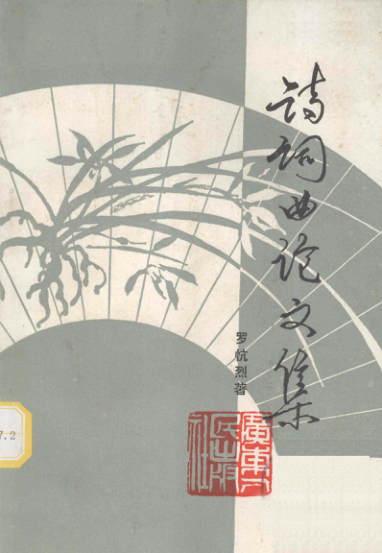 诗词曲论文集
罗忼烈著
廣東人民出版社
7.2